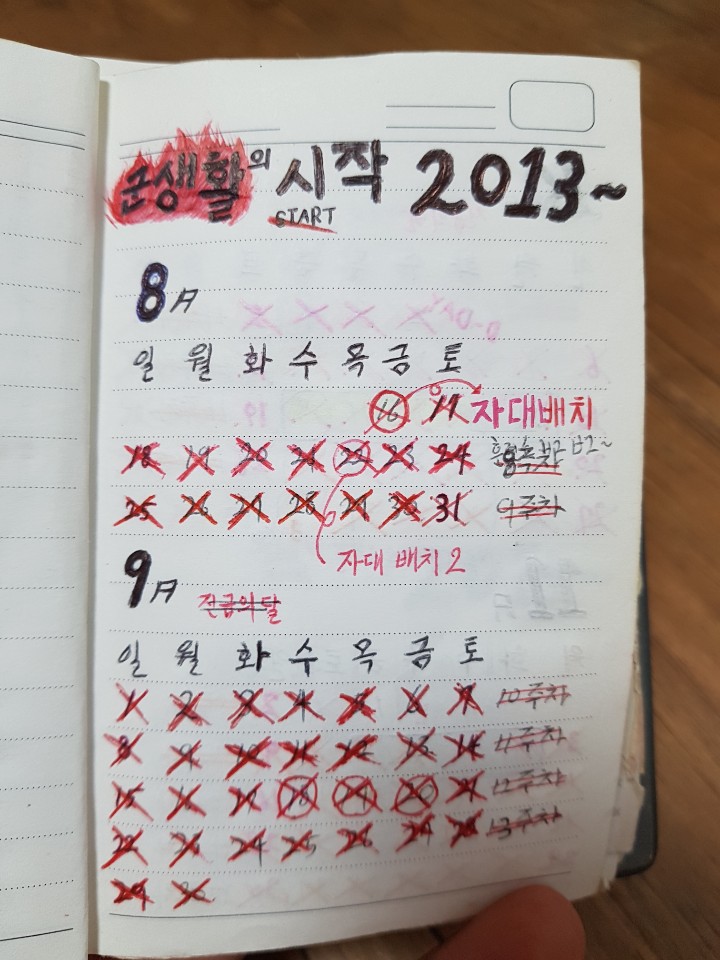 군생활의 시작 2013~
START
8月
일 월 화 수 목 금 토
16 17 자대배치
18 19 20 21 22 23 24
25 26 27 28 29 30 31 9주차
자대 배치 2
9月 진급의달
일 월 화 수 목 금 토
1 2 3 4 5 6 7 10주차
8 9 10 11 12 13 14 11주차
15 16 17 18 19 20 21 12주차
22 23 24 25 26 27 28 13주차
29 30